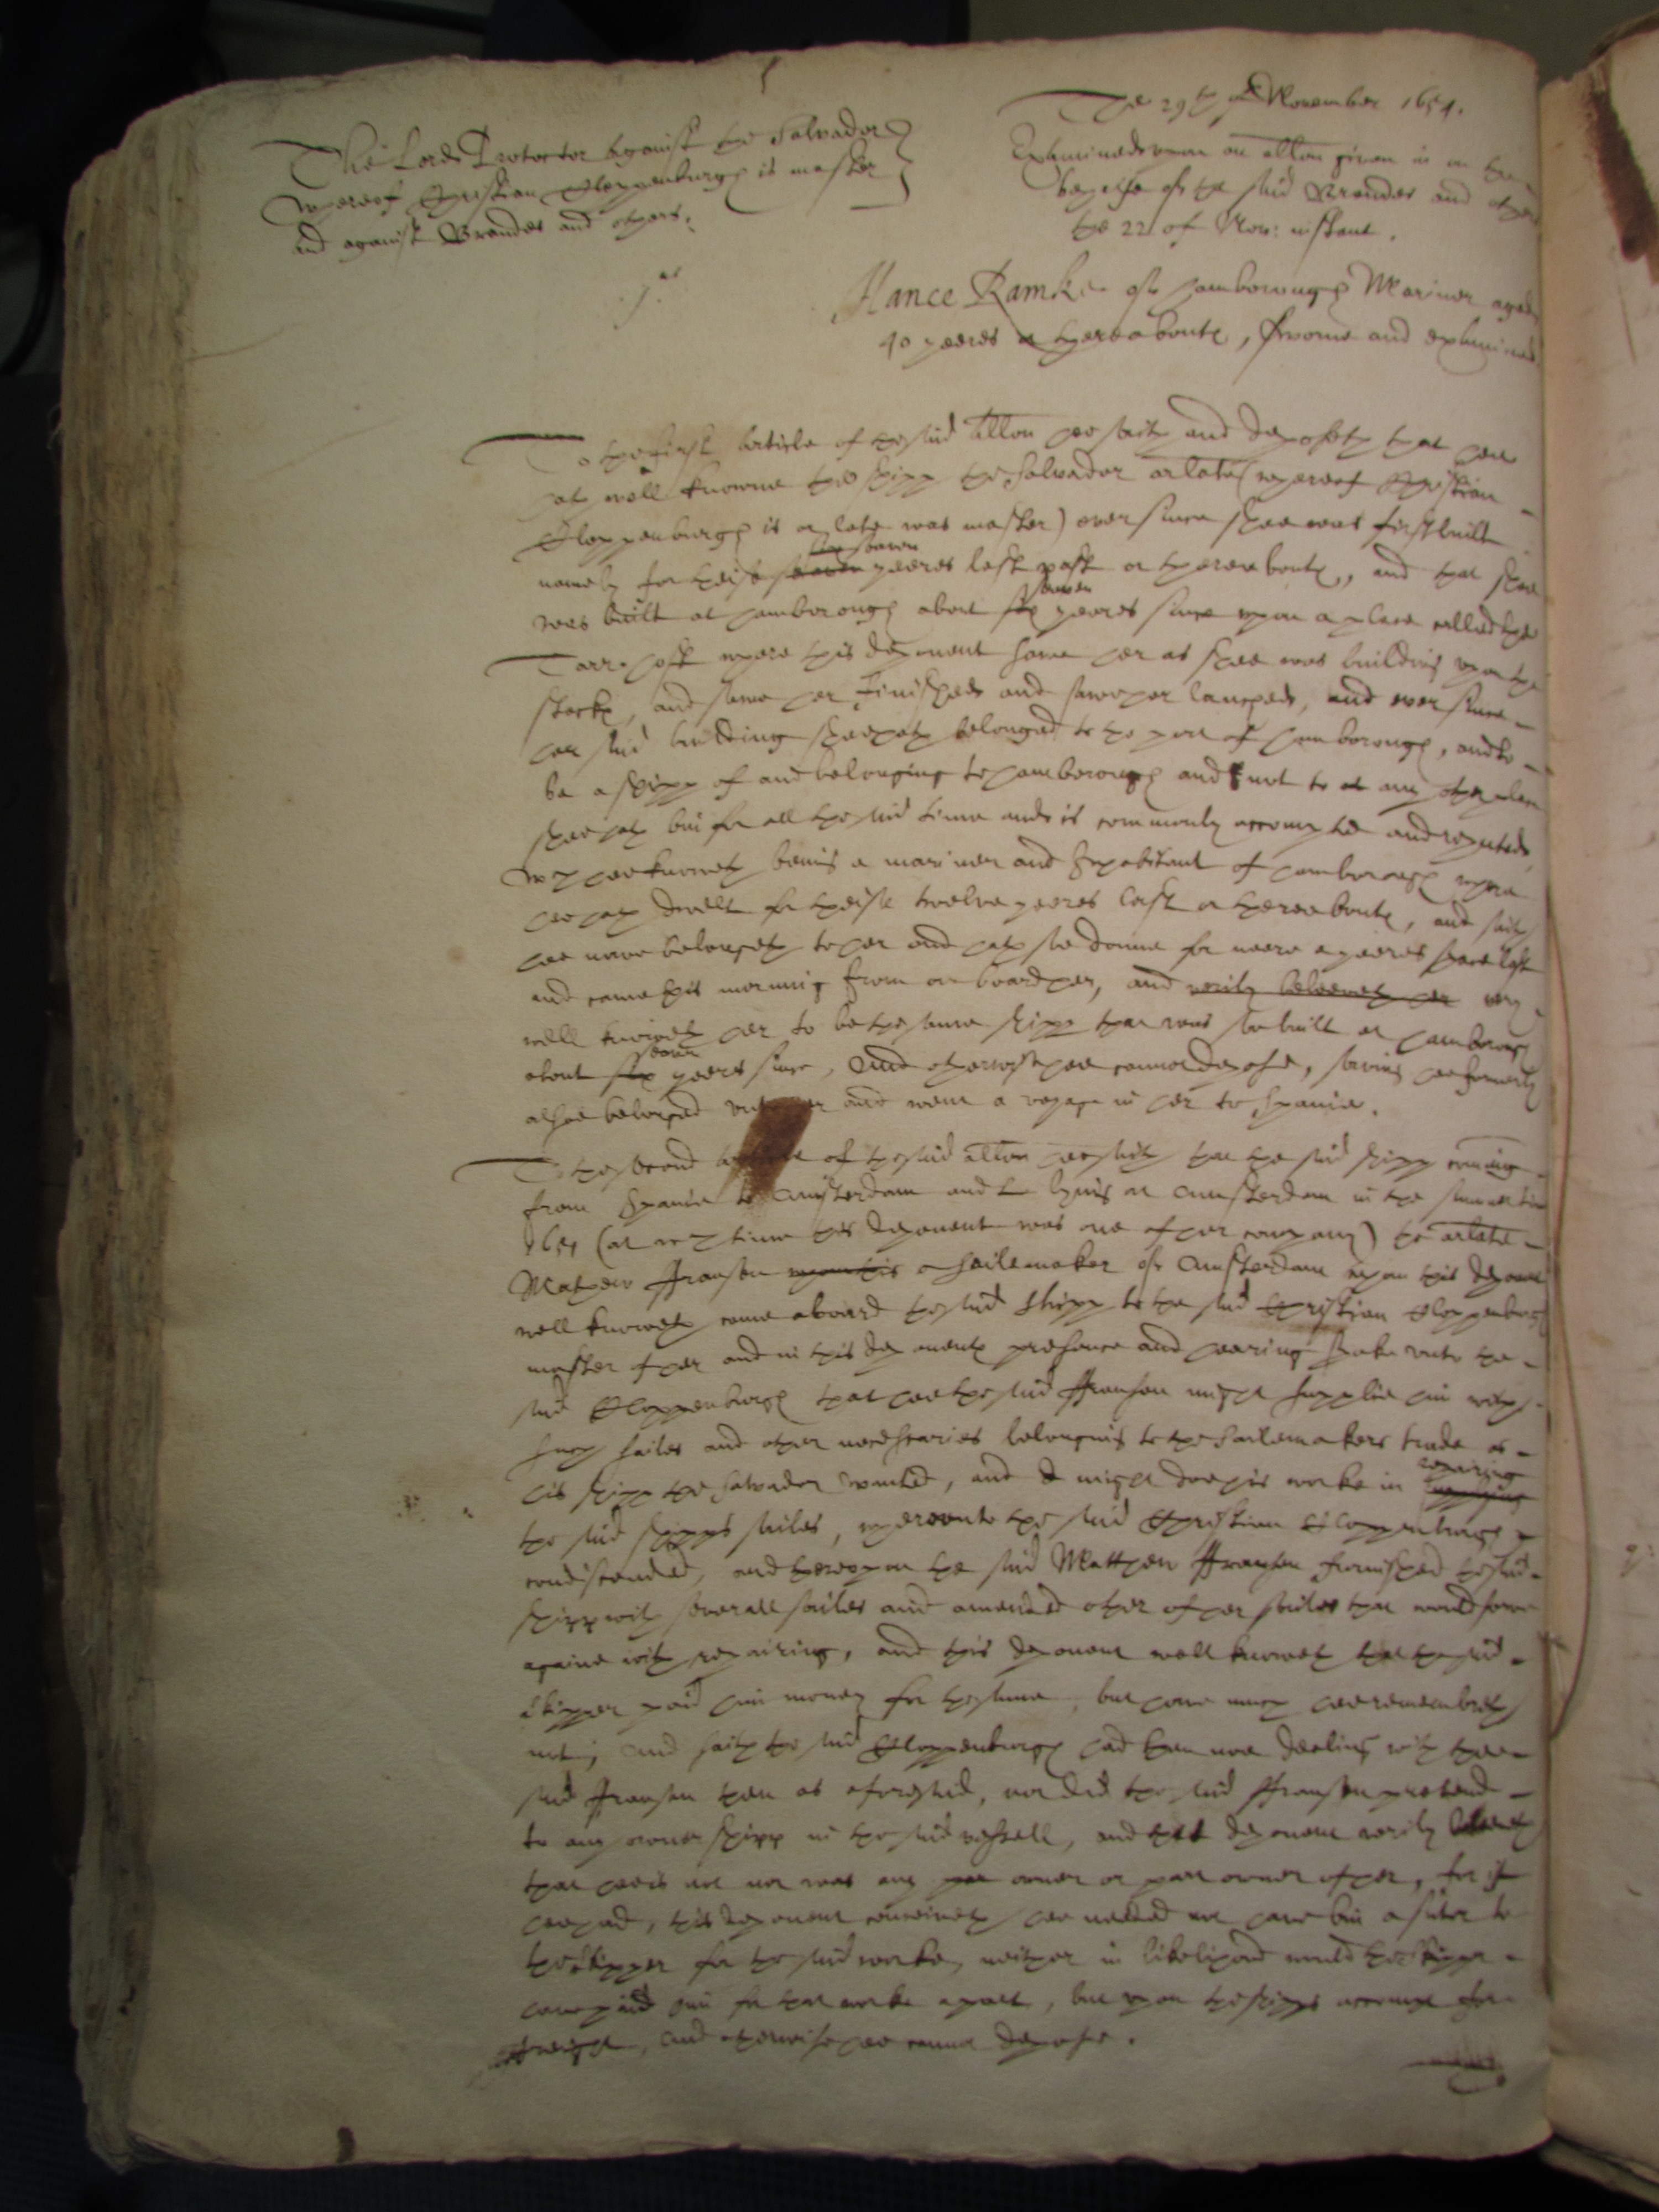 The 29th of November 1654.
The Lord Protector against the Salvador
whereof Christian Cloppenburgh is master
and against Brandes and others.
Examined upon an allon given in on the
behalfe of the said Brandes and others
the 22 of Nov: instant.
1us
Hance Ramke of Hamborough Mariner aged
40 yeeres or thereabouts, sworne and examined
To the first article of the said allon hee saith and deposeth that hee
hath well knowne the shipp the Salvador arlate (whereof Christian
Cloppenburgh is or late was master) ever since shee was first built
namely for theise seaven yeeres last past or thereabouts, and that shee
was built at Hamborough about six seaven yeeres since upon a place called the
Tarr-hoff where this deponent sawe her as shee was building upon the
stocks, and sawe her finished and sawe her lanched, and ever since
her said building shee hath belonged to the port of Hamborough, and to
be a shipp of and belonging to Hamborough and not to at any other place
shee hath bin for all the said time and is commonly accompted and reputed,
wch hee knoweth being a mariner and Inhabitant of Hamborough where
hee hath dwelt for theise twelve yeeres last or thereabouts, and saith
hee now belongeth to her and hath soe donne for neere a yeeres space last
and came this morning from on board her, and verily beleeveth her very
well knoweth her to be the same shipp that was soe built at Hamborough
about six seaven yeeres since, And otherwise hee cannot depose, saving hee formerly
alsoe belonged unto her and went a voyage in her to Spaine.
To the second article of the said allon hee saith that the said shipp coming
from Spaine to Amsterdam and lying at Amsterdam in the summer time
1651 (at wch time this deponent was one of her company) the arlate
Mathew Fransen a sailemaker of Amsterdam whom this deponent
well knoweth came aboard the said shipp to the said Christian Cloppenburgh
master of her and in this deponents presence and hearing spake unto the
said Cloppenburgh that hee the said Fransen might supplie him with
such sailes and other necessaries belonging to the sailemakers trade as
his shipp the Salvador wanted, and might doe his worke in repairing
the said shipps sailes, whereunto the said Christian Cloppenburgh
condiscended, and thereupon the said Matthew Fransen furnished the said
shipp with severall sailes and amended other of her sailes that would serve
againe with repairing, and this deponent well knoweth that the said
skipper paid him money for the same, but how much hee remembreth
not, and saith the said Cloppenburgh had then noe dealing with the
said Fransen then as aforesaid, nor did the said Fransen pretend
to any owner shipp in the said vessell, and this deponent verily beleeveth
that hee is not nor was any owner or part owner of her, for if
hee had, this deponent conceiveth hee needed not have bin a suter to
the skipper for the said worke, neither in likelihood would the skipper
have paid him for that worke apart, but upon the shipps accompt for
freight, and otherwise hee cannot depose.